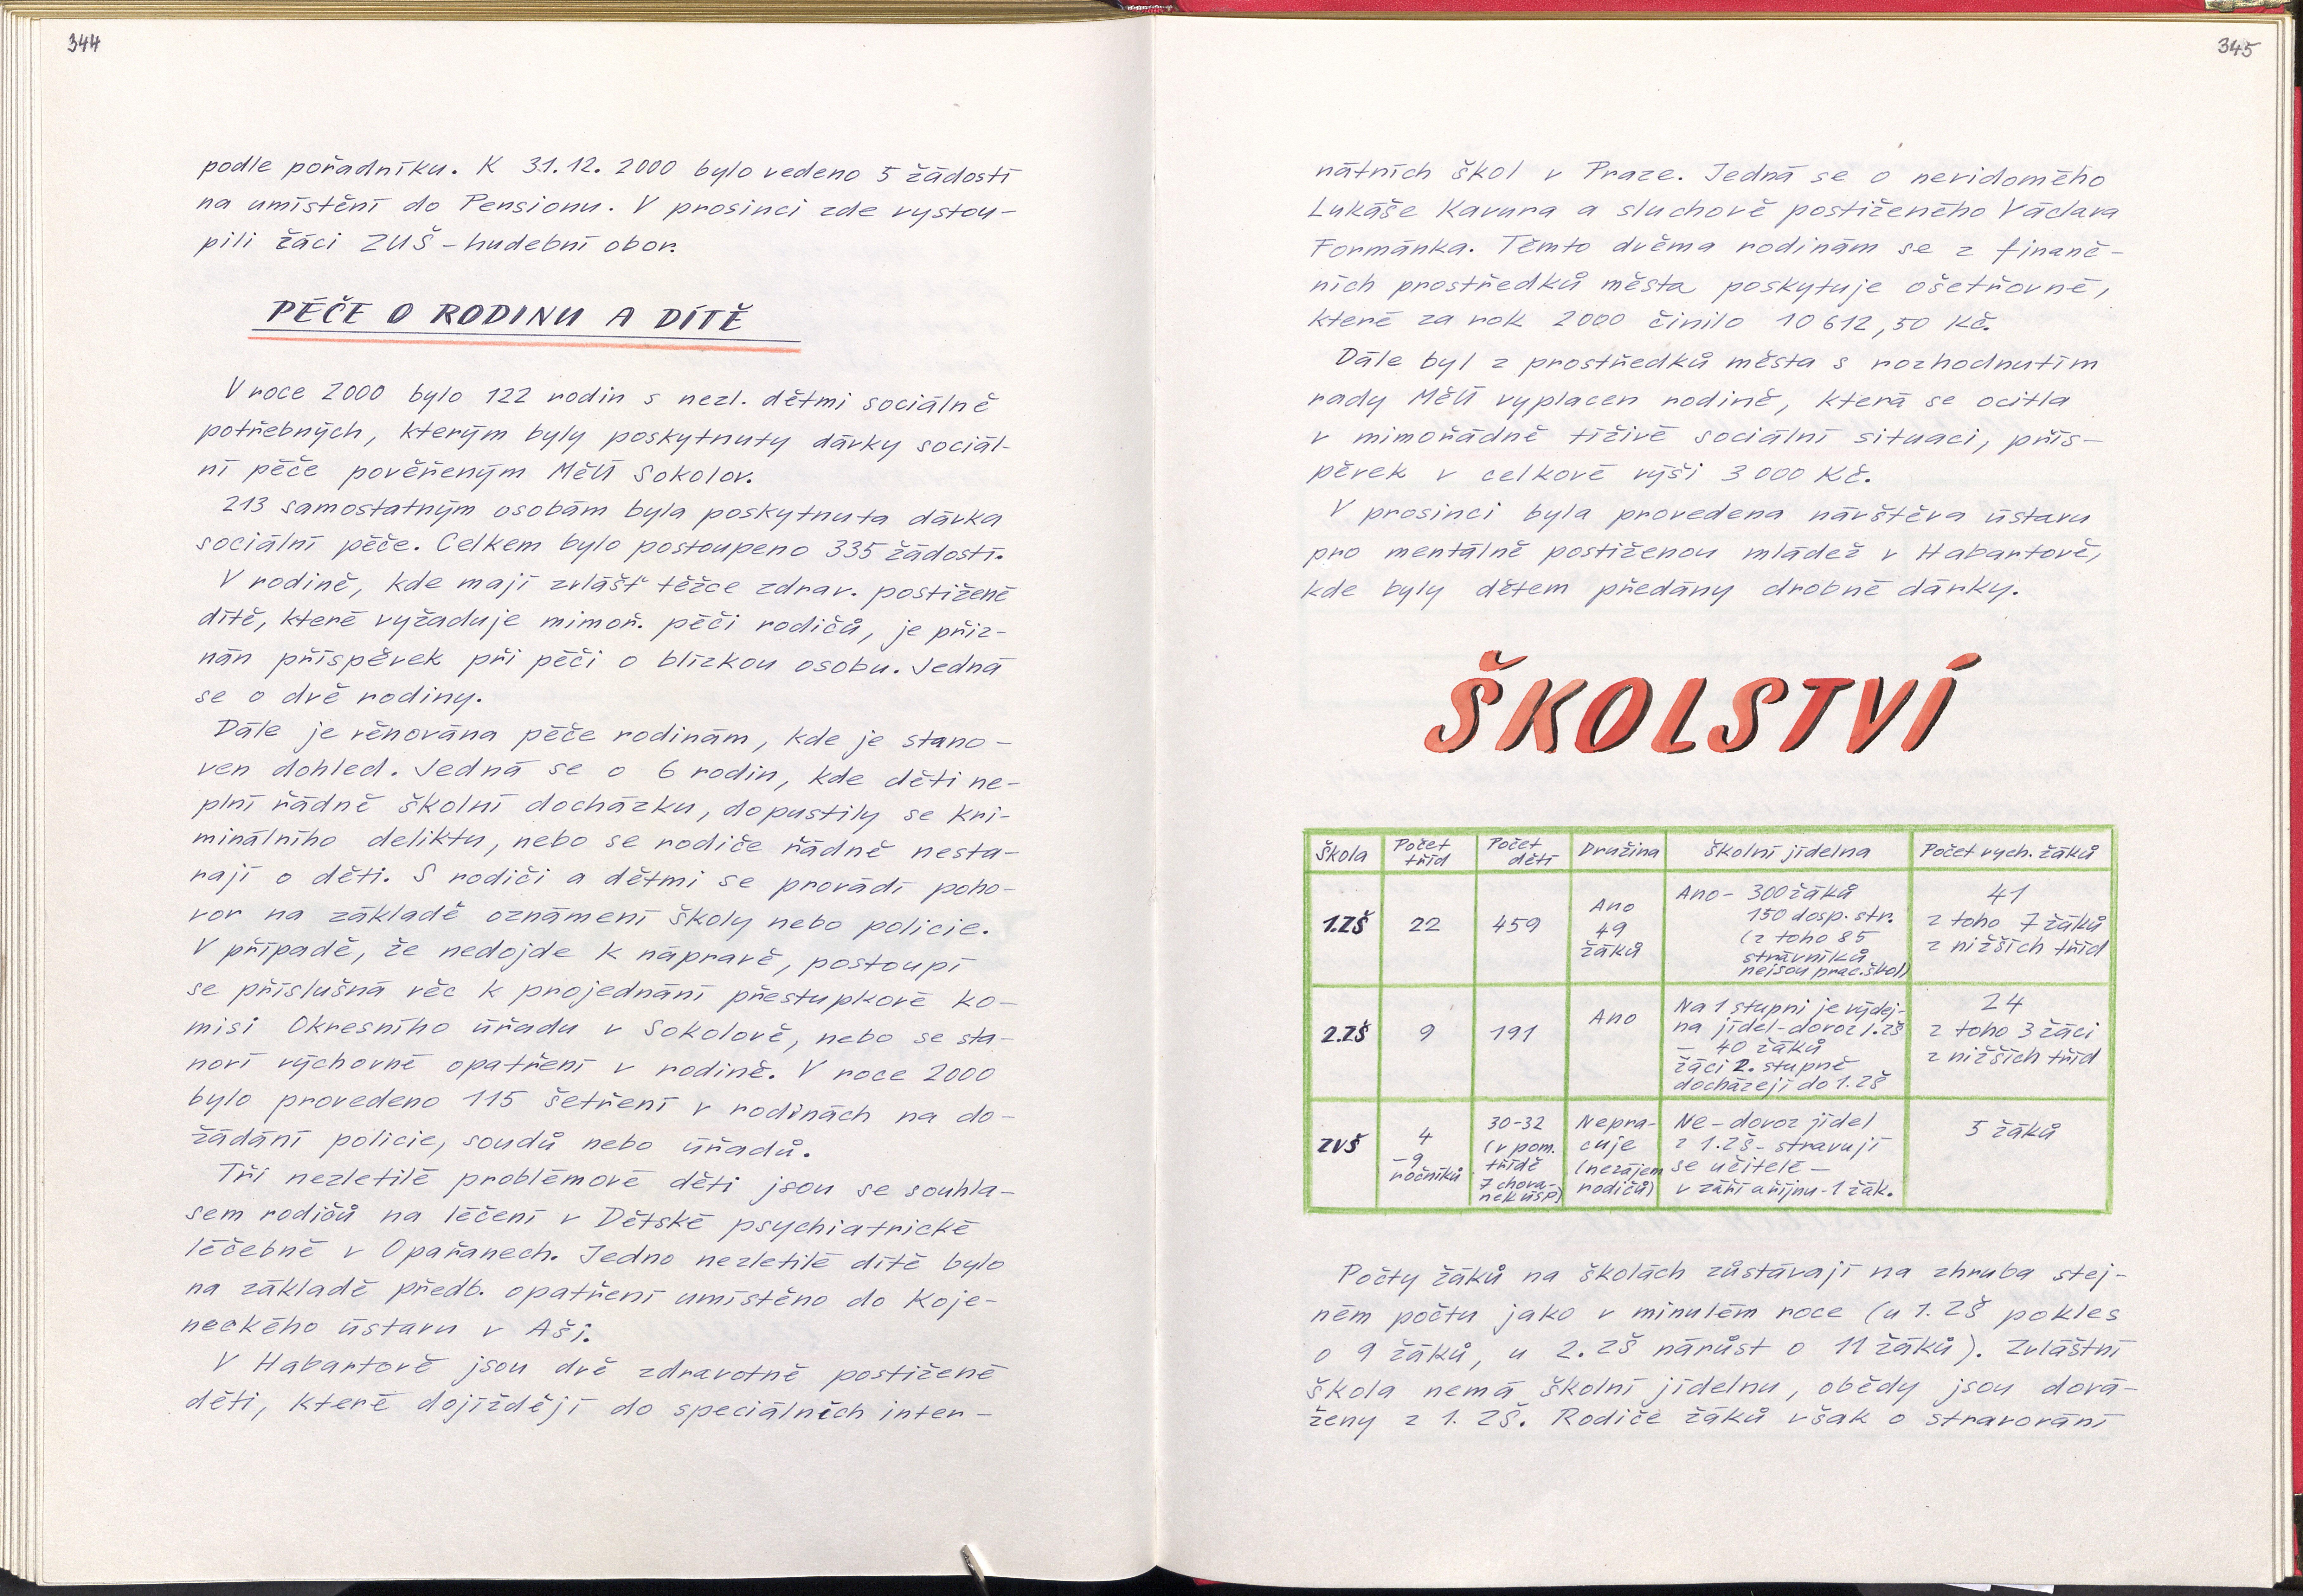 344
podle pořadníku. K 31.12. 2000 bylo vedeno 5 žádostí
na umístění do Pensionu. V prosinci zde vystou-
pili žáci ZUŠ - hudební obor.
PÉČE O RODINU A DÍTĚ
V roce 2000 bylo 122 rodin s nezl. dětmi sociálně
potřebných, kterým byly poskytnuty dávky sociál-
ní péče pověřeným MěÚ Sokolov.
213 samostatným osobám byla poskytnuta dávka
sociální péče. Celkem bylo postoupeno 335 žádostí.
V rodině, kde mají zvlášť těžce zdrav. postižené
dítě, které vyžaduje mimoř. péči rodičů, je přiz-
nán příspěvek při péči o blízkou osobu. Jedná
se o dvě rodiny.
Dále je věnována péče rodinám, kde je stano-
ven dohled. Jedná se o 6 rodin, kde děti ne-
plní řádně školní docházku, dopustily se kri-
minálního deliktu, nebo se rodiče řádně nesta-
rají o děti. S rodiči a dětmi se provádí poho-
vor na základě oznámení školy nebo policie.
V případě, že nedojde k nápravě, postoupí
se příslušná věc k projednání přestupkové ko-
misi Okresního úřadu v Sokolově, nebo se sta-
noví výchovné opatření v rodině. V roce 2000
bylo provedeno 115 šetření v rodinách na do-
žádání policie, soudů nebo úřadů.
Tři nezletilé problémové děti jsou se souhla-
sem rodičů na léčení v Dětské psychiatrické
léčebně v Opařanech. Jedno nezletilé dítě bylo
na základě předb. opatření umístěno do Koje-
neckého ústavu v Aši.
V Habartově jsou dvě zdravotně postižené
děti, které dojíždějí do speciálních inter-
345
nátních škol v Praze. Jedná se o nevidomého
Lukáše Kavura a sluchově postiženého Václava
Formánka. Těmto dvěma rodinám se z finanč-
ních prostředků města poskytuje ošetřovné,
které za rok 2000 činilo 10 612,50 Kč.
Dále byl z prostředků města s rozhodnutím
rady MěÚ vyplacen rodině, která se ocitla
v mimořádně tíživé sociální situaci, přís-
pěvek v celkové výši 3 000 Kč.
V prosinci byla provedena návštěva ústavu
pro mentálně postiženou mládež v Habartově,
kde byly dětem předány drobné dárky.
ŠKOLSTVÍ
Škola Počet tříd Počet dětí Družina Školní jídelna Počet vych. žáků
1.ZŠ 22 459 Ano 49 žáků Ano - 300 žáků 150 dosp. str. (z toho 85 strávníků nejsou prac. škol) 41 z toho 7 žáků z nižších tříd
2.ZŠ 9 191 Ano Na 1 stupni je výdej- na jídel - dovoz 1.ZŠ - 40 žáků žáci 2. stupně docházejí do 1.ZŠ 24 z toho 3 žáci z nižších tříd
ZVŠ 4 - 9 ročníků 30-32 (v pom. třídě 7 chova- nek ÚSP) Nepra- cuje (nezájem rodičů) Ne - dovoz jídel z 1.ZŠ - stravují se učitelé - v září a říjnu - 1 žák. 5 žáků
Počty žáků na školách zůstávají na zhruba stej-
ném počtu jako v minulém roce (u 1. ZŠ pokles
o 9 žáků, u 2. ZŠ nárůst o 11 žáků). Zvláštní
škola nemá školní jídelnu, obědy jsou dová-
ženy z 1. ZŠ. Rodiče žáků však o stravování